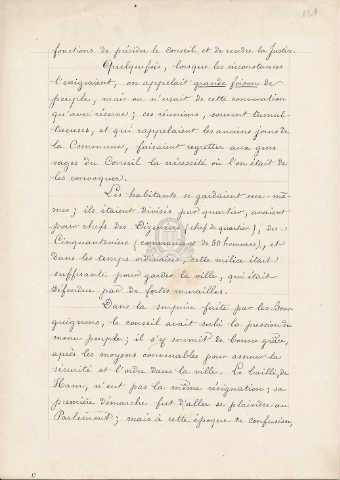 fonctions de présider le conseil et de rendre la justice.
Quelquefois, lorsque les circonstances
l'exigeaient, on appelait grande foison de
peuple, mais on n'usait de cette convocation
qu'avec réserve; ces réunions, souvent tumul-
tueuses, et qui rappelaient les anciens jours de
la Commune, faisaient regretter aux gens
sages du Conseil la nécessité où l'on était de
les convoquer.
Les habitants se gardaient eux-mê-
mes; ils étaient divisés par quartier, avaient
pour chefs des Dizeniers (chef de quartier), des
Cinquanteniers (commandant de 50 hommes), et
dans les temps ordinaires, cette milice était
suffisante pour garder la ville, qui était
défendue par de fortes murailles.
Dans la surprise faite par les Bour-
guignons, le conseil avait subi la passion du
menu peuple; il s'y soumit de bonne grâce,
après les moyens convenables pour assurer la
sécurité et l'ordre dans la ville. Le bailli, de
Ham, n'eut pas la même résignation; sa
première démarche fut d'aller se plaindre au
Parlement; mais à cette époque de confusion,